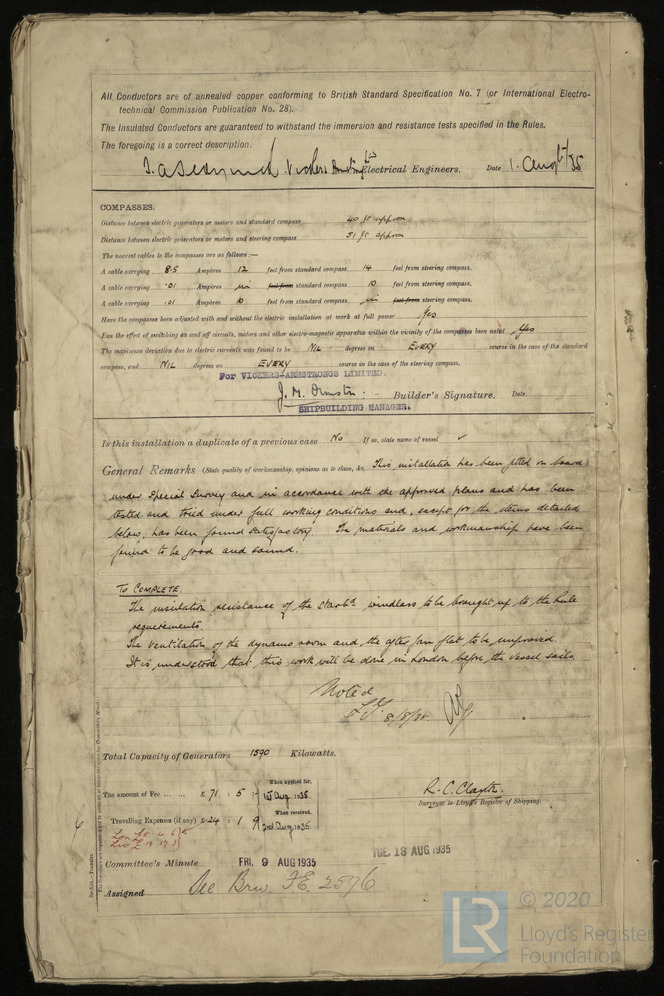 All Conductors are of annealed copper conforming to British Standard Specification No. 7 (or International Electro-
technical Commission Publication No. 28).
The Insulated Conductors are guaranteed to withstand the immersion and resistance tests specified in the Rules.
The foregoing is a correct description.
Vickers Electrical Engineers. Date 1. Aug 35
COMPASSES.
Distance between electric generators or motors and standard compass 40 ft approx
Distance between electric generators or motors and steering compass 51 ft approx
The nearest cables to the compasses are as follows:—
A cable carrying 8.5 Ampères 12 feet from standard compass 14 feet from steering compass.
A cable carrying .01 Ampères in feet from standard compass 10 feet from steering compass.
A cable carrying .01 Ampères 10 feet from standard compass in feet from steering compass.
Have the compasses been adjusted with and without the electric installation at work at full power Yes
Has the effect of switching on and off circuits, motors and other electro-magnetic apparatus within the vicinity of the compasses been noted Yes
The maximum deviation due to electric currents was found to be NIL degrees on EVERY course in the case of the standard
compass, and NIL degrees on EVERY course in the case of the steering compass.
For VICKERS-ARMSTRONGS LIMITED.
J. M. Ormston. Builder's Signature. Date
SHIPBUILDING MANAGER.
Is this installation a duplicate of a previous case No If so, state name of vessel ✓
General Remarks (State quality of workmanship, opinions as to class, &c. This installation has been fitted on board
under Special Survey and in accordance with the approved plans and has been
tested and tried under full working conditions and, except for the items detailed
below, has been found satisfactory. The materials and workmanship have been
found to be good and sound.
TO COMPLETE
The insulation resistance of the starbd windlass to be brought up to the Rule
requirements.
The ventilation of the dynamo room and the after fan flat to be improved.
It is understood that this work will be done in London before the vessel sails.
Noted
8/8/35
Total Capacity of Generators 1590 Kilowatts.
The amount of Fee ... ... £71 : 5 :- When applied for, 1st Aug 1935
R. C. Clayton.
Surveyor to Lloyd's Register of Shipping.
Travelling Expenses (if any) £24 : 1 9 When received, 2nd Aug 1935
Committee's Minute FRI. 9 AUG 1935
TUE. 13 AUG 1935
Assigned See Brw. F.E. 2576
LR
© 2020
Lloyd's Register
Foundation